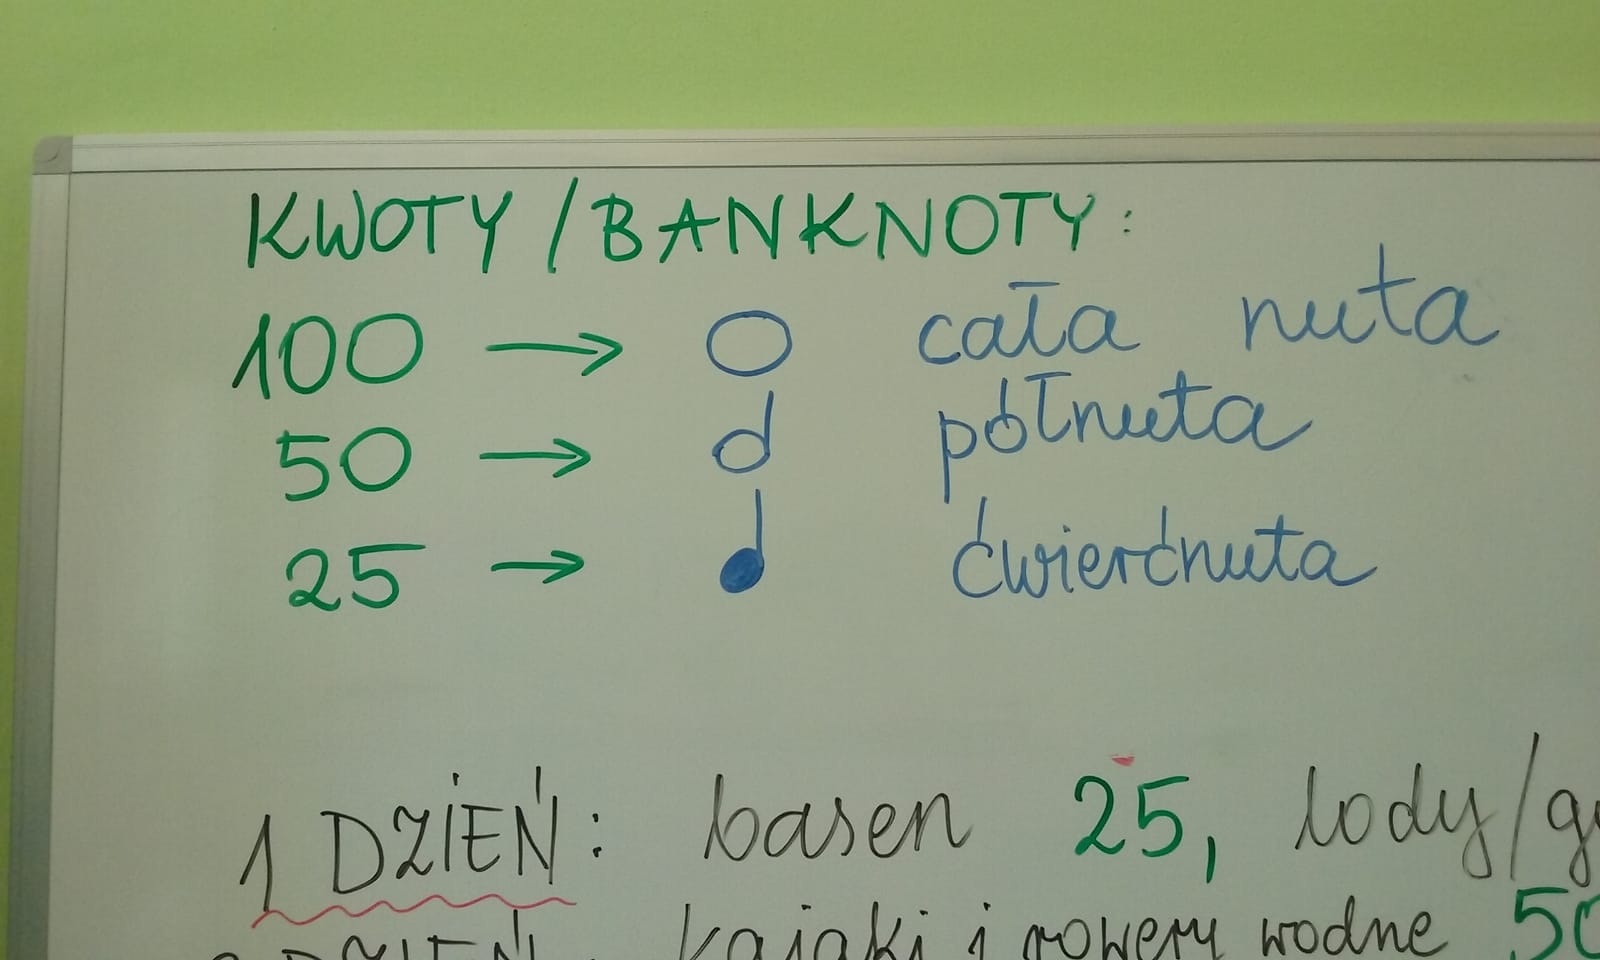 KWOTY / BANKNOTY:
100 → cała nuta
50 → półnuta
25 → ćwierćnuta
1 DZIEŃ: basen 25, lody/g
DZIEŃ: kajaki i rowery wodne 50